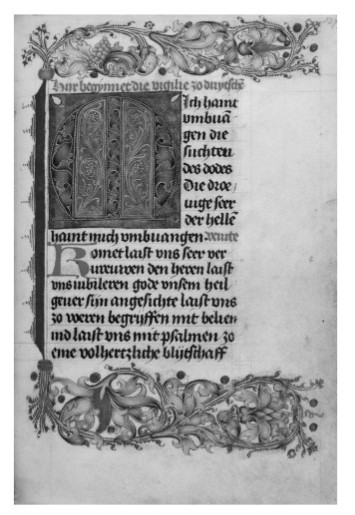 Hur begynnet die vigilie zo duytschē
Mich haint
vmbuā
gen die
suchten
des dodes
Die droe
uige seer
der hellē
haint mich vmbuangen. venite
Komet laist vns seer ver
vreuwen den heren laist
vns iubileren gode vnsem heil
geuer sijn angesichte laist vns
zo voeren begryffen mit belien
ind laist vns mit psalmen zo
eme volhertzliche